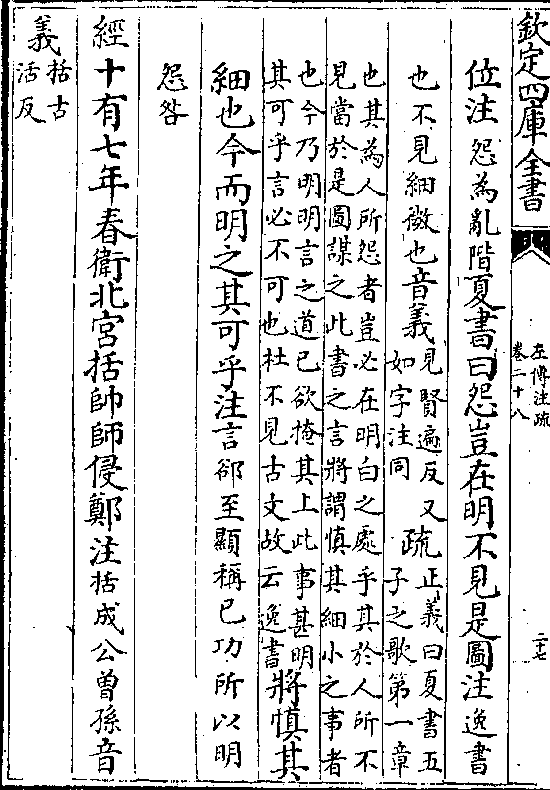 欽定四庫全書
左傳注疏
卷二十八
二十七
位注怨為亂階夏書曰怨豈在明不見是圖注逸書
也不見細微也音義見賢遍反又
如字注同疏正義曰夏書五
子之歌第一章
也其為人所怨者豈必在明白之處乎其於人所不
見當於是圖謀之此書之言將謂慎其細小之事者
也今乃明明言之道已欲掩其上此事甚明
其可乎言必不可也杜不見古文故云逸書將慎其
細也今而明之其可乎注言郤至顯稱已功所以明
怨咎
經十有七年春衛北宮括帥師侵鄭注括成公曾孫音
義括古
活反